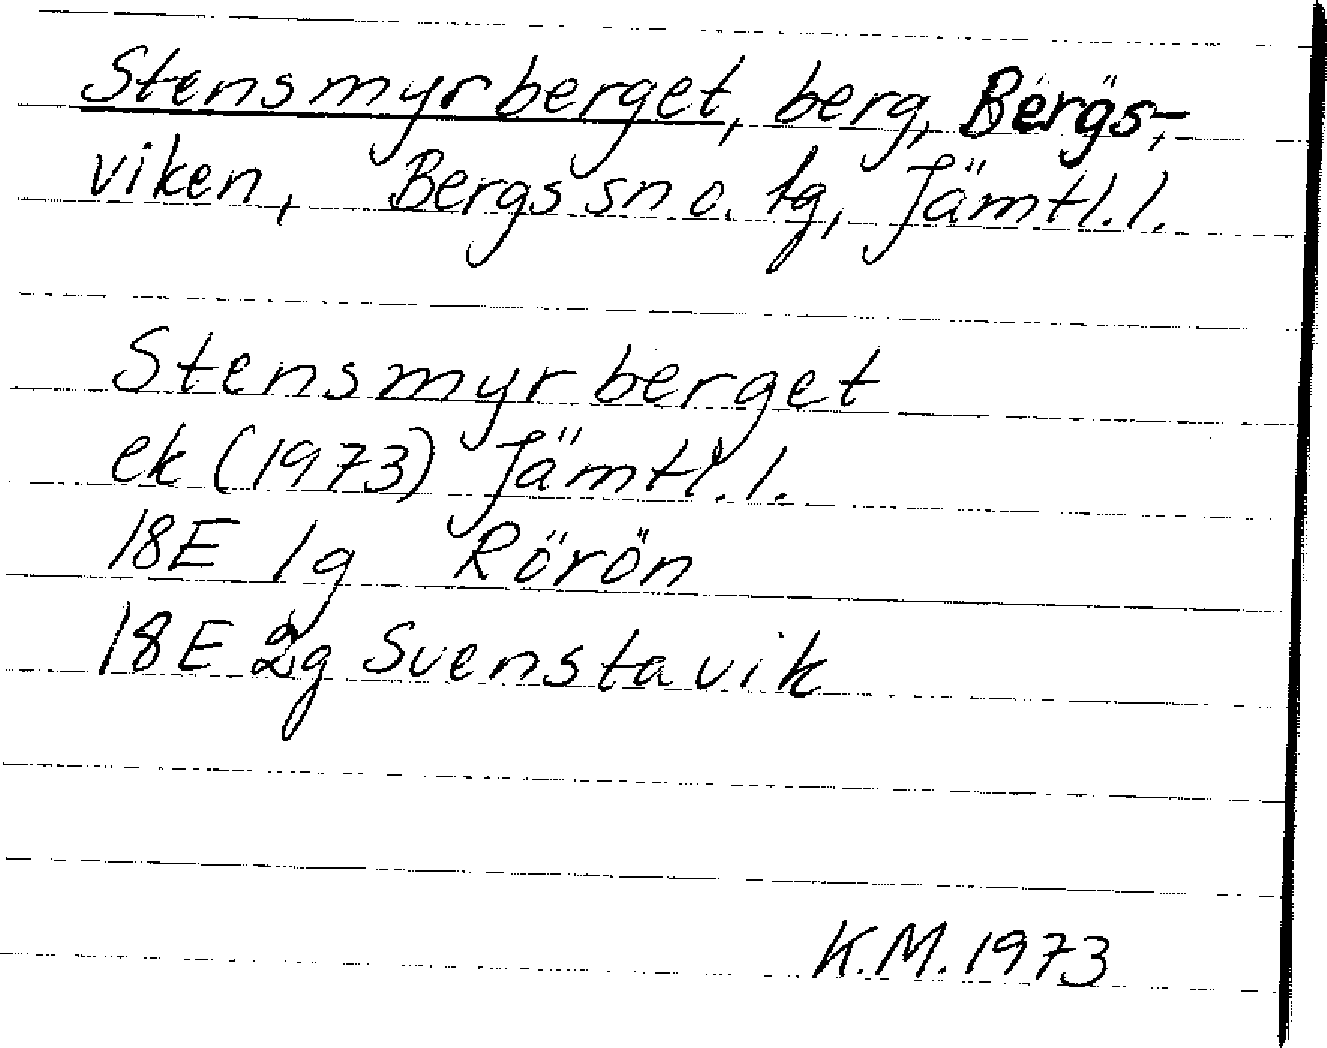 Stensmyrberget, berg, Bergs-
viken, Bergs sn o. tg, Jämtl. l.
Stensmyrberget
ek (1973) Jämtl. l.
18E 1g Rörön
18E 2g Svenstavik
K.M. 1973